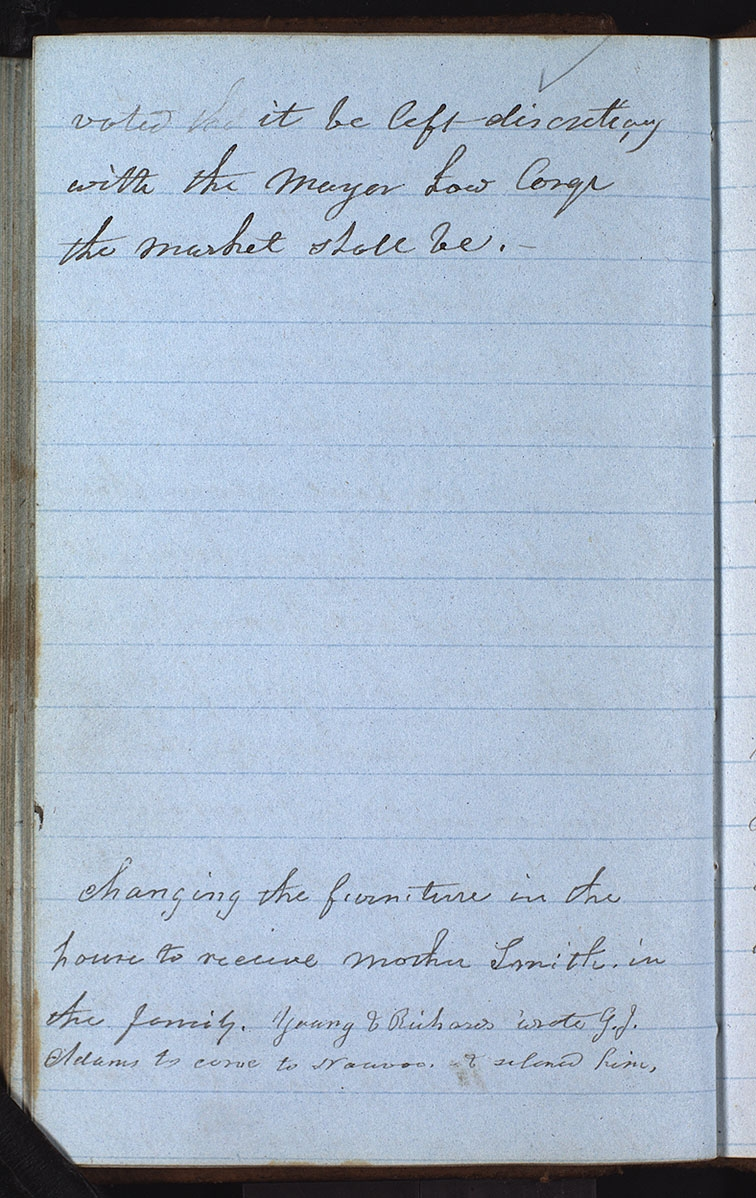 voted that it be left discretiony
with the Mayor how longe
the market shall be. –
changing the furniture in the
house to receive mother Smith. in
the family. Young & Richards wrote G. J.
Adams to come to Nauvoo. & silened him,